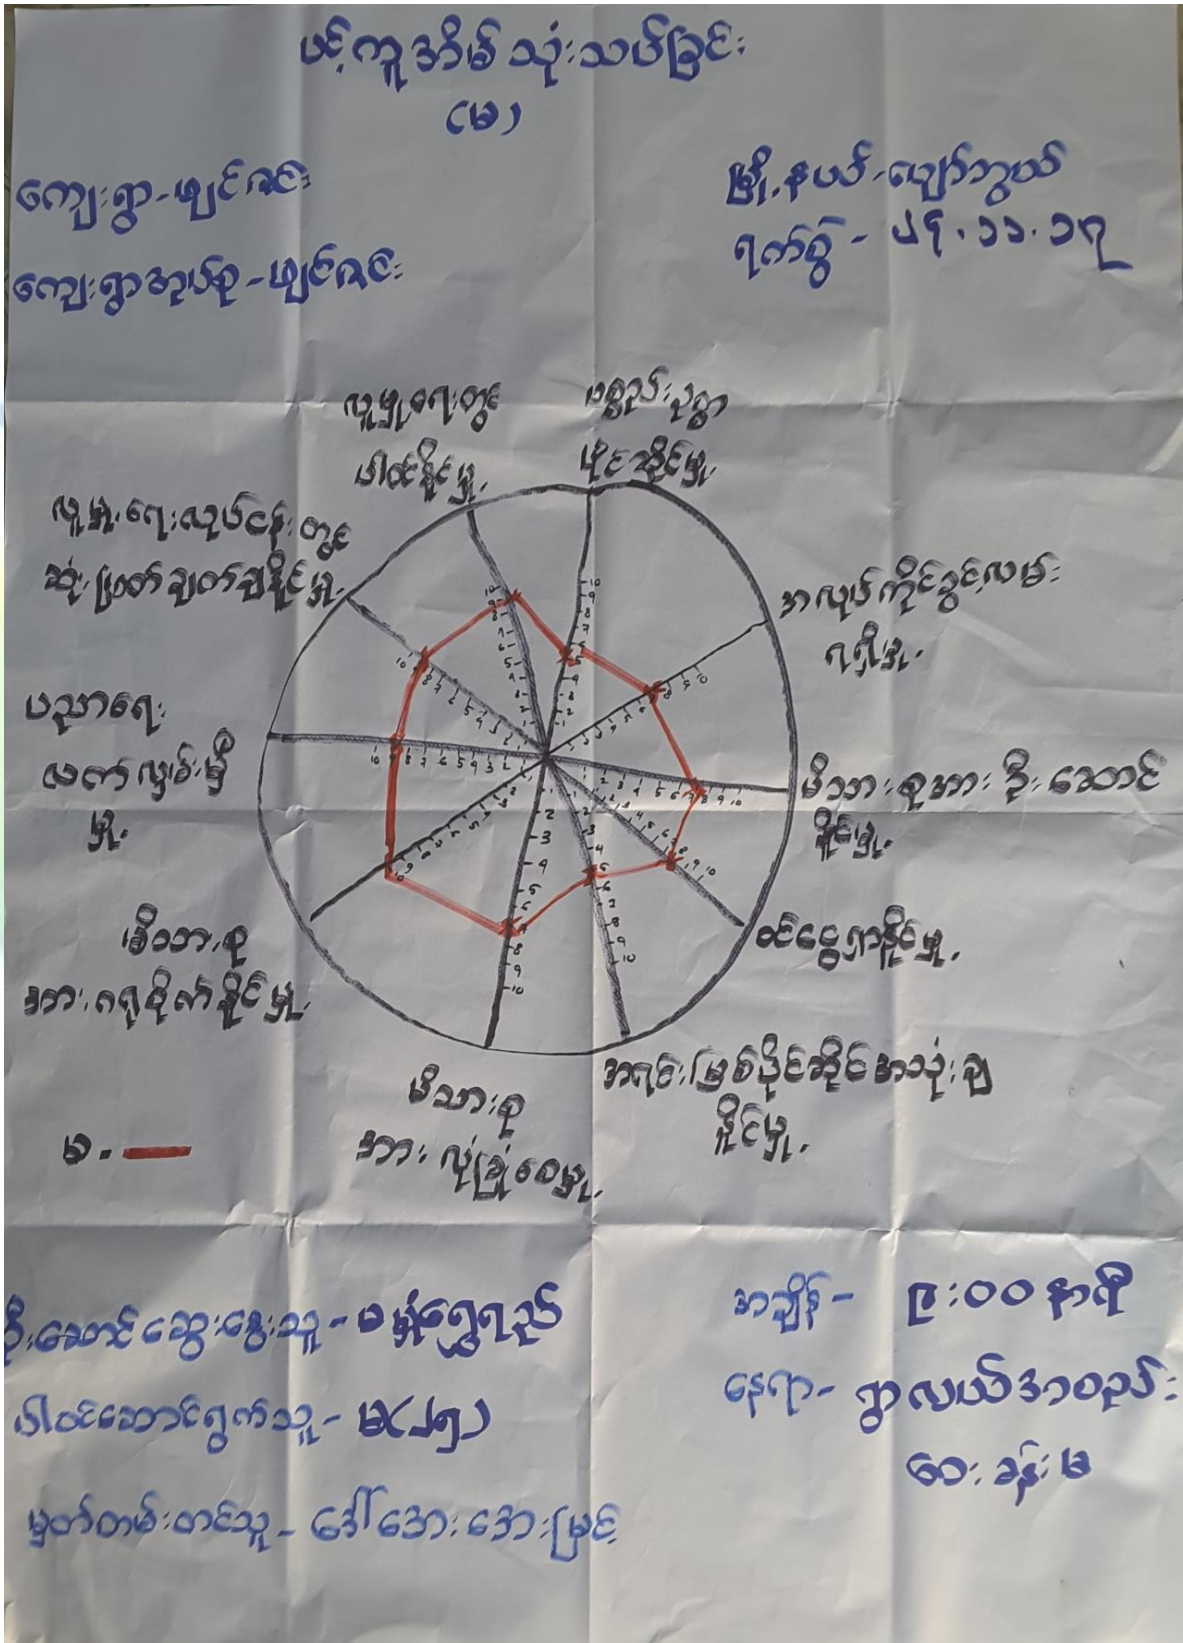 ပင့်ကူအိမ် သုံးသပ်ခြင်း
(မ)
ကျေးရွာ - မျင်ဇင်း
မြို့နယ် - ပျော်ဘွယ်
ရက်စွဲ -
ကျေးရွာအုပ်စု - မျင်ဇင်း
လူမှုရေးတွင်
ပါဝင်နိုင်မှု.
ပစ္စည်းဥစ္စာ
ပိုင်ဆိုင်မှု.
လူမှုရေးလုပ်ငန်းတွင်
ဆုံးဖြတ်ချက်ချနိုင်မှု.
အလုပ်ကိုင်ခွင့်လမ်း
ရရှိမှု.
ပညာရေး
လက်လှမ်းမှီ
မှု.
မိသားစုအား ဦးဆောင်
နိုင်မှု.
မိသားစု
အား ဂရုစိုက်နိုင်မှု.
ဝင်ငွေရှာနိုင်မှု.
အရင်းမြစ်ပိုင်ဆိုင်အသုံးချ
နိုင်မှု.
မိသားစု
အား လုံခြုံစေမှု.
မ -
ဦးဆောင်ဆွေးနွေးသူ - မမှုံရွှေရည်
ပါဝင်ဆောင်ရွက်သူ - မ(၂၅)
မှတ်တမ်းတင်သူ - ဒေါ်အေးအေးမြင့်
အချိန် - ၉:၀၀ နာရီ
နေရာ - ရွာလယ်အစည်း
ဝေးခန်းမ